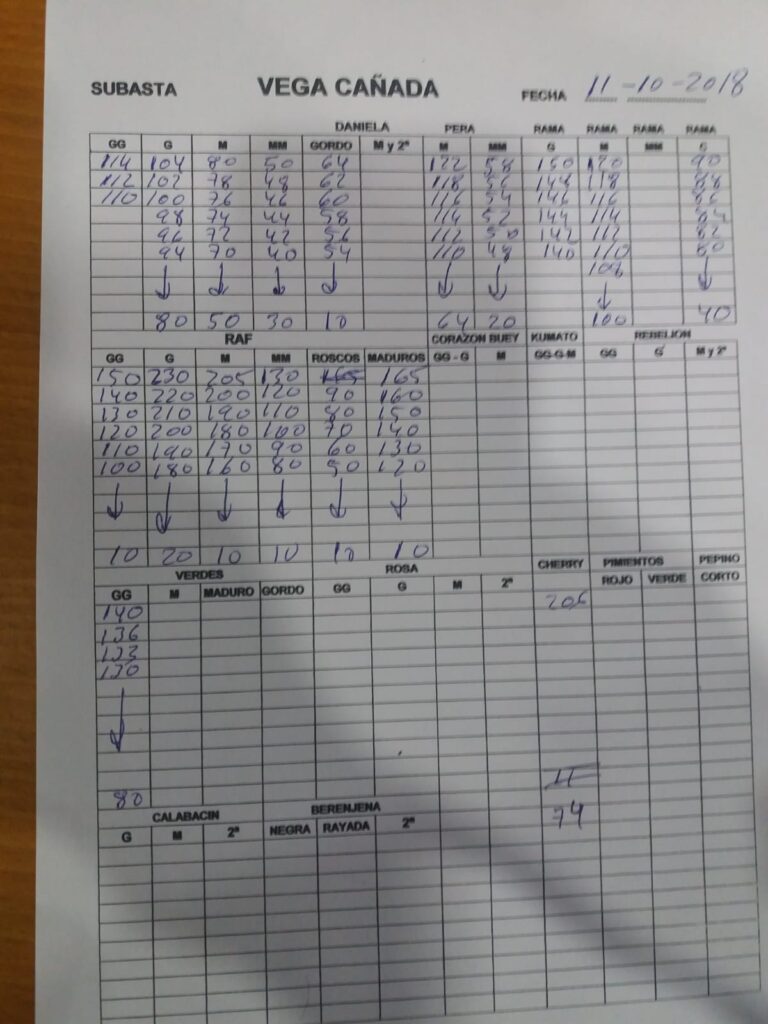 SUBASTA VEGA CAÑADA FECHA 11-10-2018
DANIELA PERA RAMA RAMA RAMA RAMA
GG G M MM GORDO M y 2ª M MM G M MM G
114 104 80 50 64 122 58 150 120 90
112 102 78 48 62 118 56 148 118 88
110 100 76 46 60 116 54 146 116 86
98 74 44 58 114 52 144 114 84
96 72 42 56 112 50 142 112 82
94 70 40 54 110 48 140 110 80
108
↓ ↓ ↓ ↓ ↓ ↓ ↓ ↓
80 50 30 10 64 20 100 40
RAF CORAZON BUEY KUMATO REBELION
GG G M MM ROSCOS MADUROS GG - G M GG-G-M GG G M y 2ª
150 230 205 130 165 165
140 220 200 120 90 160
130 210 190 110 80 150
120 200 180 100 70 140
110 190 170 90 60 130
100 180 160 80 50 120
↓ ↓ ↓ ↓ ↓ ↓
10 20 10 10 10 10
VERDES ROSA CHERRY PIMIENTOS PEPINO
GG M MADURO GORDO GG G M 2ª ROJO VERDE CORTO
140 206
136
133
130
↓
80
74
CALABACIN BERENJENA
G M 2ª NEGRA RAYADA 2ª